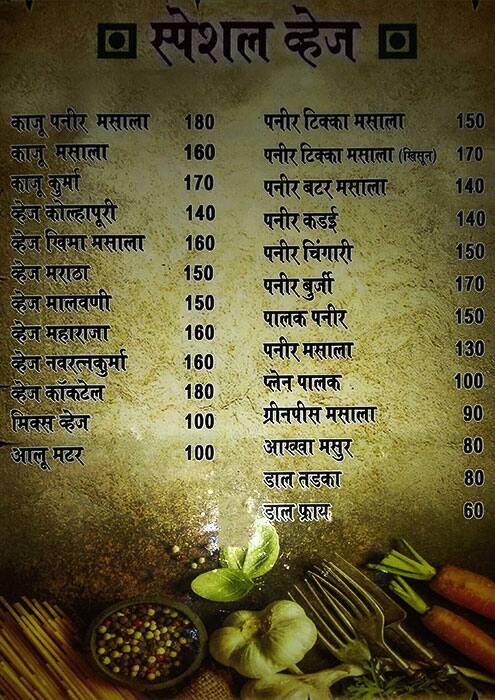 स्पेशल व्हेज
काजू पनीर मसाला 180
काजू मसाला 160
काजू कुर्मा 170
व्हेज कोल्हापूरी 140
व्हेज खिमा मसाला 160
व्हेज मराठा 150
व्हेज मालवणी 150
व्हेज महाराजा 160
व्हेज नवरत्नकुर्मा 160
व्हेज कॉकटेल 180
मिक्स व्हेज 100
आलू मटर 100
पनीर टिक्का मसाला 150
पनीर टिक्का मसाला (खिसून) 170
पनीर बटर मसाला 140
पनीर कडई 140
पनीर चिंगारी 150
पनीर बुर्जी 170
पालक पनीर 150
पनीर मसाला 130
प्लेन पालक 100
ग्रीनपीस मसाला 90
आख्खा मसुर 80
डाल तडका 80
डाल फ्राय 60